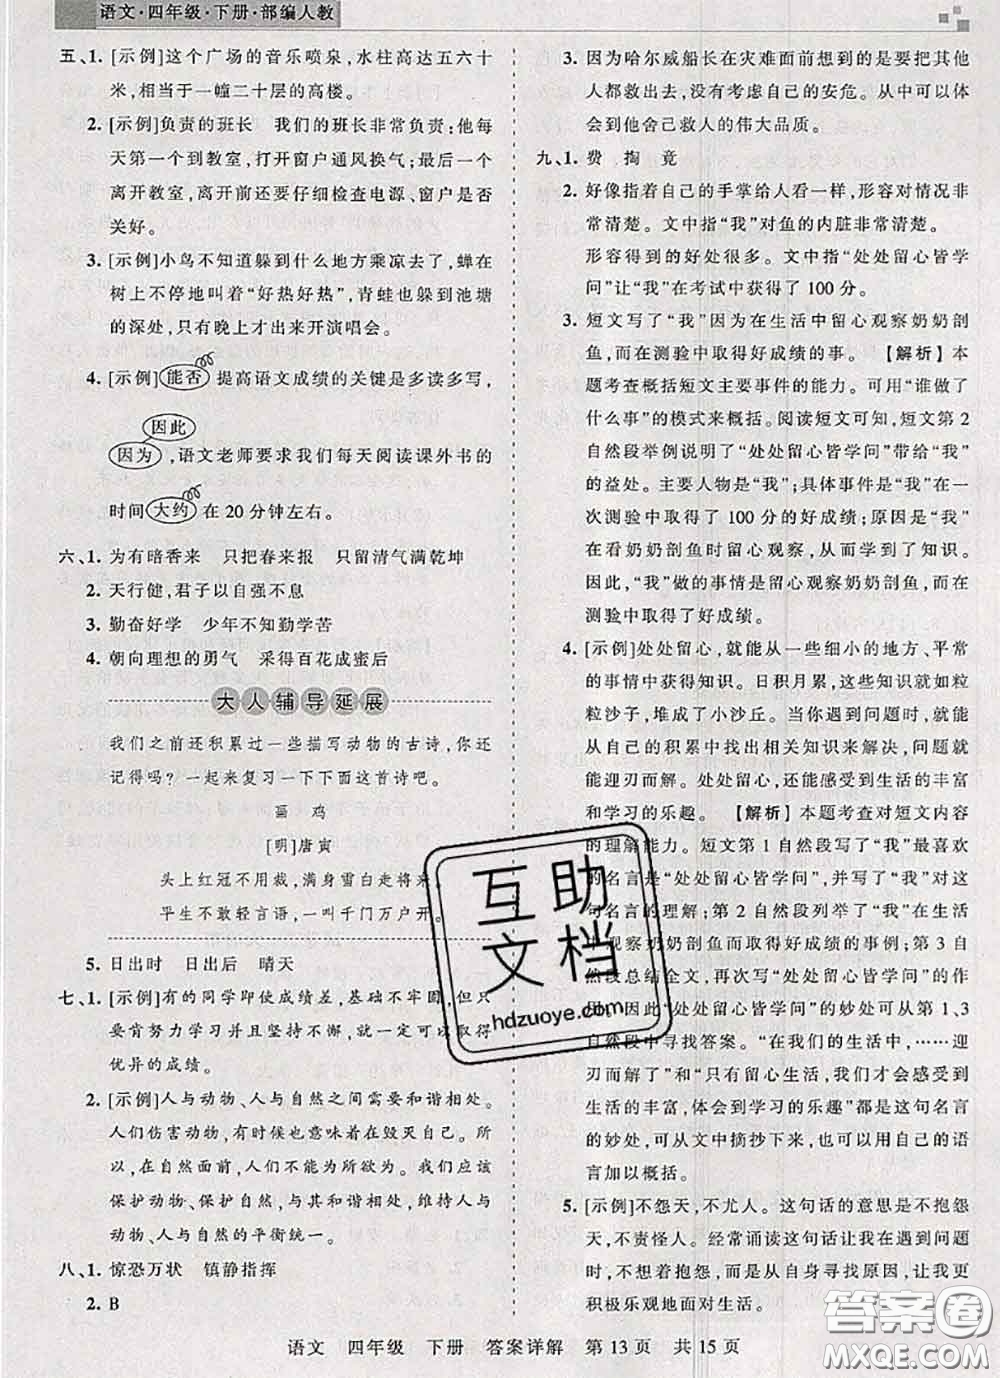 语文·四年级·下册·部编人教
五、1. [示例]这个广场的音乐喷泉，水柱高达五六十
米，相当于一幢二十层的高楼。
2. [示例]负责的班长　我们的班长非常负责：他每
天第一个到教室，打开窗户通风换气；最后一个
离开教室，离开前还要仔细检查电源、窗户是否
关好。
3. [示例]小鸟不知道躲到什么地方乘凉去了，蝉在
树上不停地叫着“好热好热”，青蛙也躲到池塘
的深处，只有晚上才出来开演唱会。
4. [示例]能否 提高语文成绩的关键是多读多写，
因此
因为，语文老师要求我们每天阅读课外书的
时间 大约 在 20 分钟左右。
六、1. 为有暗香来　只把春来报　只留清气满乾坤
2. 天行健，君子以自强不息
3. 勤奋好学　少年不知勤学苦
4. 朝向理想的勇气　采得百花成蜜后
大人辅导延展
我们之前还积累过一些描写动物的古诗，你还
记得吗？一起来复习一下下面这首诗吧。
画　鸡
[明]唐寅
头上红冠不用裁，满身雪白走将来。
平生不敢轻言语，一叫千门万户开。
5. 日出时　日出后　晴天
七、1. [示例]有的同学即使成绩差，基础不牢固，但只
要肯努力学习并且坚持不懈，就一定可以取得
优异的成绩。
2. [示例]人与动物、人与自然之间需要和谐相处。
人们伤害动物，有时候也意味着在毁灭自己。所
以，在自然面前，人们不能为所欲为。我们应该
保护动物、保护自然，与其和谐相处，维持人与
动物、人与自然的平衡统一。
八、1. 惊恐万状　镇静指挥
2. B
3. 因为哈尔威船长在灾难面前想到的是要把其他
人都救出去，没有考虑自己的安危。从中可以体
会到他舍己救人的伟大品质。
九、1. 费　掏　竟
2. 好像指着自己的手掌给人看一样，形容对情况非
常清楚。文中指“我”对鱼的内脏非常清楚。
形容得到的好处很多。文中指“处处留心皆学
问”让“我”在考试中获得了 100 分。
3. 短文写了“我”因为在生活中留心观察奶奶剖
鱼，而在测验中取得好成绩的事。【解析】本
题考查概括短文主要事件的能力。可用“谁做了
什么事”的模式来概括。阅读短文可知，短文第 2
自然段举例说明了“处处留心皆学问”带给“我”
的益处。主要人物是“我”；具体事件是“我”在一
次测验中取得了 100 分的好成绩；原因是“我”
在看奶奶剖鱼时留心观察，从而学到了知识。
因此，“我”做的事情是留心观察奶奶剖鱼，而在
测验中取得了好成绩。
4. [示例]处处留心，就能从一些细小的地方、平常
的事情中获得知识。日积月累，这些知识就如粒
粒沙子，堆成了小沙丘。当你遇到问题时，就能
从自己的积累中找出相关知识来解决，问题就
能迎刃而解。处处留心，还能感受到生活的丰富
和学习的乐趣。【解析】本题考查对短文内容
的理解能力。短文第 1 自然段写了“我”最喜爱
的名言就是“处处留心皆学问”，并写了“我”对这
句名言的理解；第 2 自然段列举了“我”在生活
中观察奶奶剖鱼而取得好成绩的事例；第 3 自
然段总结全文，再次写“处处留心皆学问”的作
用。因此“处处留心皆学问”的妙处可从第 1、3
自然段中寻找答案。“在我们的生活中，……迎
刃而解”和“只有留心生活，才能真正感受到生
活的丰富，体会到学习的乐趣”都是这句名言
的妙处，可从文中摘抄下来，也可以用自己的语
言加以概括。
5. [示例]不怨天，不尤人。这句话的意思是不抱怨
天，不责怪人。经常诵读这句话让我在遇到问题
时，不想着抱怨，而是从自身寻找原因，让我更
积极乐观地面对生活。
语文　四年级　下册　答案详解　第 13 页　共 15 页
互助
文档
hdzuoye.com
答案圈
MXQE.COM